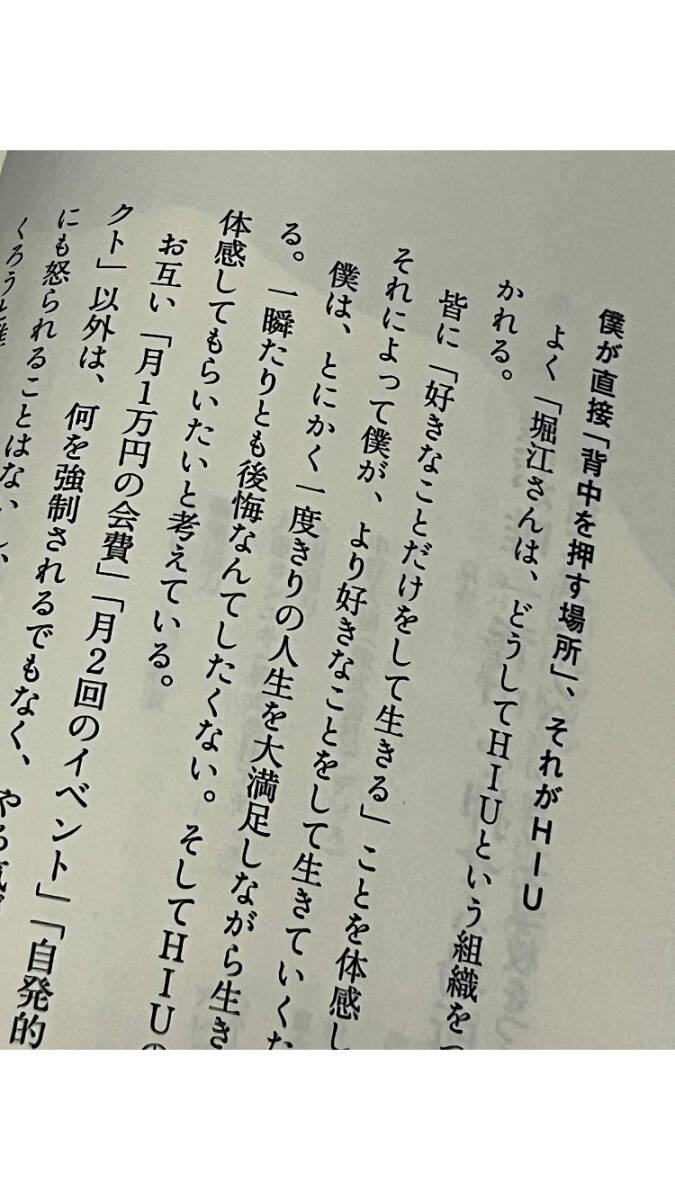 僕が直接「背中を押す場所」、それがHIU
よく「堀江さんは、どうしてHIUという組織を
かれる。
皆に「好きなことだけをして生きる」ことを体感し
それによって僕が、より好きなことをして生きていくた
僕は、とにかく一度きりの人生を大満足しながら生き
る。一瞬たりとも後悔なんてしたくない。そしてHIUの
体感してもらいたいと考えている。
お互い「月1万円の会費」「月2回のイベント」「自発的
クト」以外は、何を強制されるでもなく、やる気
にも怒られることはない
くろうと